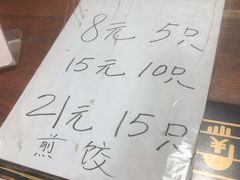 8元 5只
15元 10只
21元 15只
煎饺